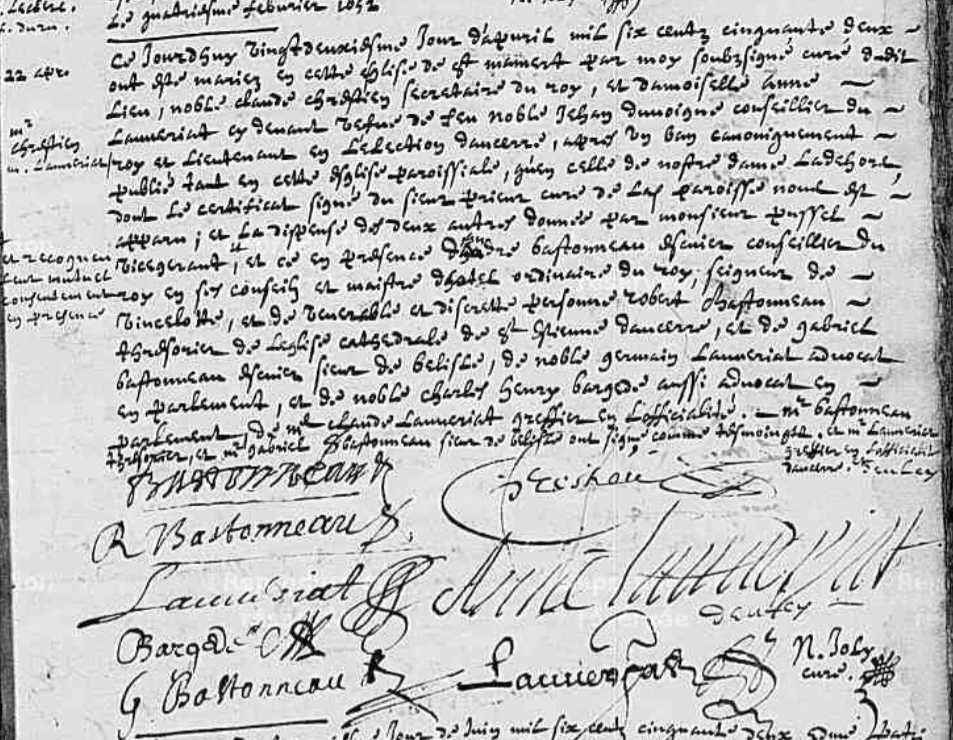 . Leclerc.
Le quatriesme febvrier 1652
22 apr.
Ce Jourdhuy vingtdeuxiesme Jour dapvril mil six centz cinquante deux
ont esté mariez en cette Esglise de St mamert par moy soubzsigné curé dudit
Lieu, noble claude chrestien secretaire du roy, et damoiselle anne
Lauveriat cy devant vefve de feu noble Jehan duvoigne conseillier du
mr
chrestien
m. Lauveriat
roy et Lieutenant en Lelection dancerre, apres un ban canoniquement
publié tant en cette Esglise paroissiale, qu'en celle de nostre dame Ladehors,
dont le certificat signé du sieur prieur curé de Lad paroisse nous est
apparu, et La dispense des deux autres donnée par monsieur pussel
vicegerant, et ce en presence bastonneau escuier conseillier du
et recogneu
leur mutuel
consentement
en presence
roy en ses conseils et maistre dhostel ordinaire du roy, seigneur de
Vincelotte, et de venerable et discrette personne robert bastonneau
thresorier de Leglise cathedrale de St Estienne dancerre, et de gabriel
bastonneau escuier sieur de belisle, de noble germain Lauveriat advocat
en parlement, et de noble charles henry bargedé aussi advocat en
parlement de me claude Lauveriat greffier en Lofficialité. mr bastonneau
thresorier, et mr gabriel bastonneau sieur de belisle ont signé comme tesmoingtz. et mr Lauveriat
greffier en Lofficialité
dancerre.
Bastonneau
Chrestien
R Bastonneau
Lauveriat
Anne Lauveriat
Bargedé
N. Joly
curé.
G Bastonneau
Lauveriat
Jour de Juin mil six centz cinquante deux